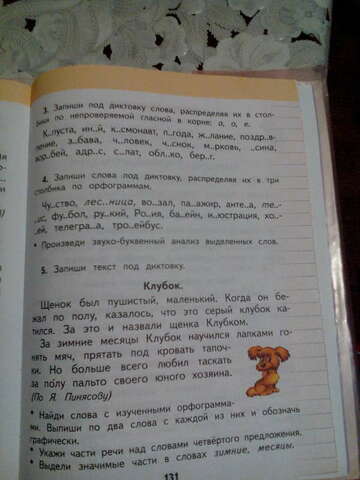 3. Запиши под диктовку слова, распределяя их в стол-
бики по непроверяемой гласной в корне: а, о, е.
К..пуста, ин..й, к..смонавт, п..года, ж..лание, поздр..в-
ление, з..бава, ч..ловек, ч..снок, м..рковь, ..сина,
вор..бей, адр..с, с..лат, обл..ко, бер..г.
4. Запиши слова под диктовку, распределяя их в три
столбика по орфограммам.
Чу..ство, лес..ница, во..зал, па..ажир, анте..а, те-
..ас, фу..бол, ру..кий, Ро..ия, ба..ейн, и..юстрация, хо..-
..ей, телегра..а, тро..ейбус.
• Произведи звуко-буквенный анализ выделенных слов.
5. Запиши текст под диктовку.
Клубок.
Щенок был пушистый, маленький. Когда он бе-
жал по полу, казалось, что это серый клубок ка-
тился. За это и назвали щенка Клубком.
За зимние месяцы Клубок научился лапками го-
нять мяч, прятать под кровать тапоч-
ки. Но больше всего любил таскать
за по́лу пальто своего юного хозяина.
(По Я. Пинясову)
• Найди слова с изученными орфограмма-
ми. Выпиши по два слова с каждой из них и обозначь
графически.
• Укажи части речи над словами четвёртого предложения.
• Выдели значимые части в словах зимние, месяцы.
131